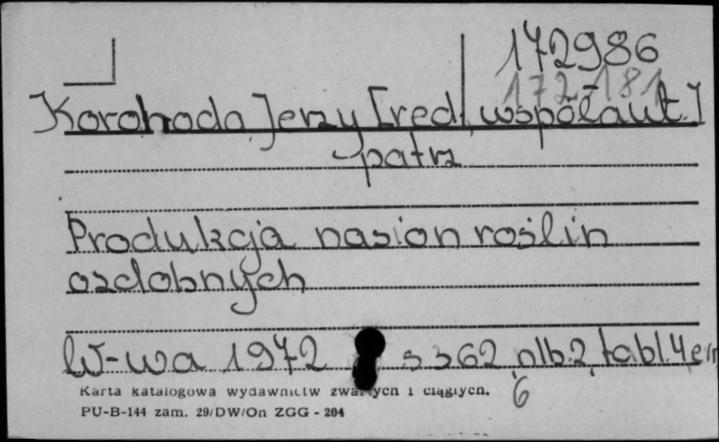 172986
172-181
Korohoda Jerzy [red., współaut.]
patrz
Produkcja nasion roślin
ozdobnych
W-wa 1972 s 362, nlb.2, tabl.4, err
6
Karta katalogowa wydawnictw zwartych i ciągłych.
PU-B-144 zam. 29/DW/On ZGG - 204